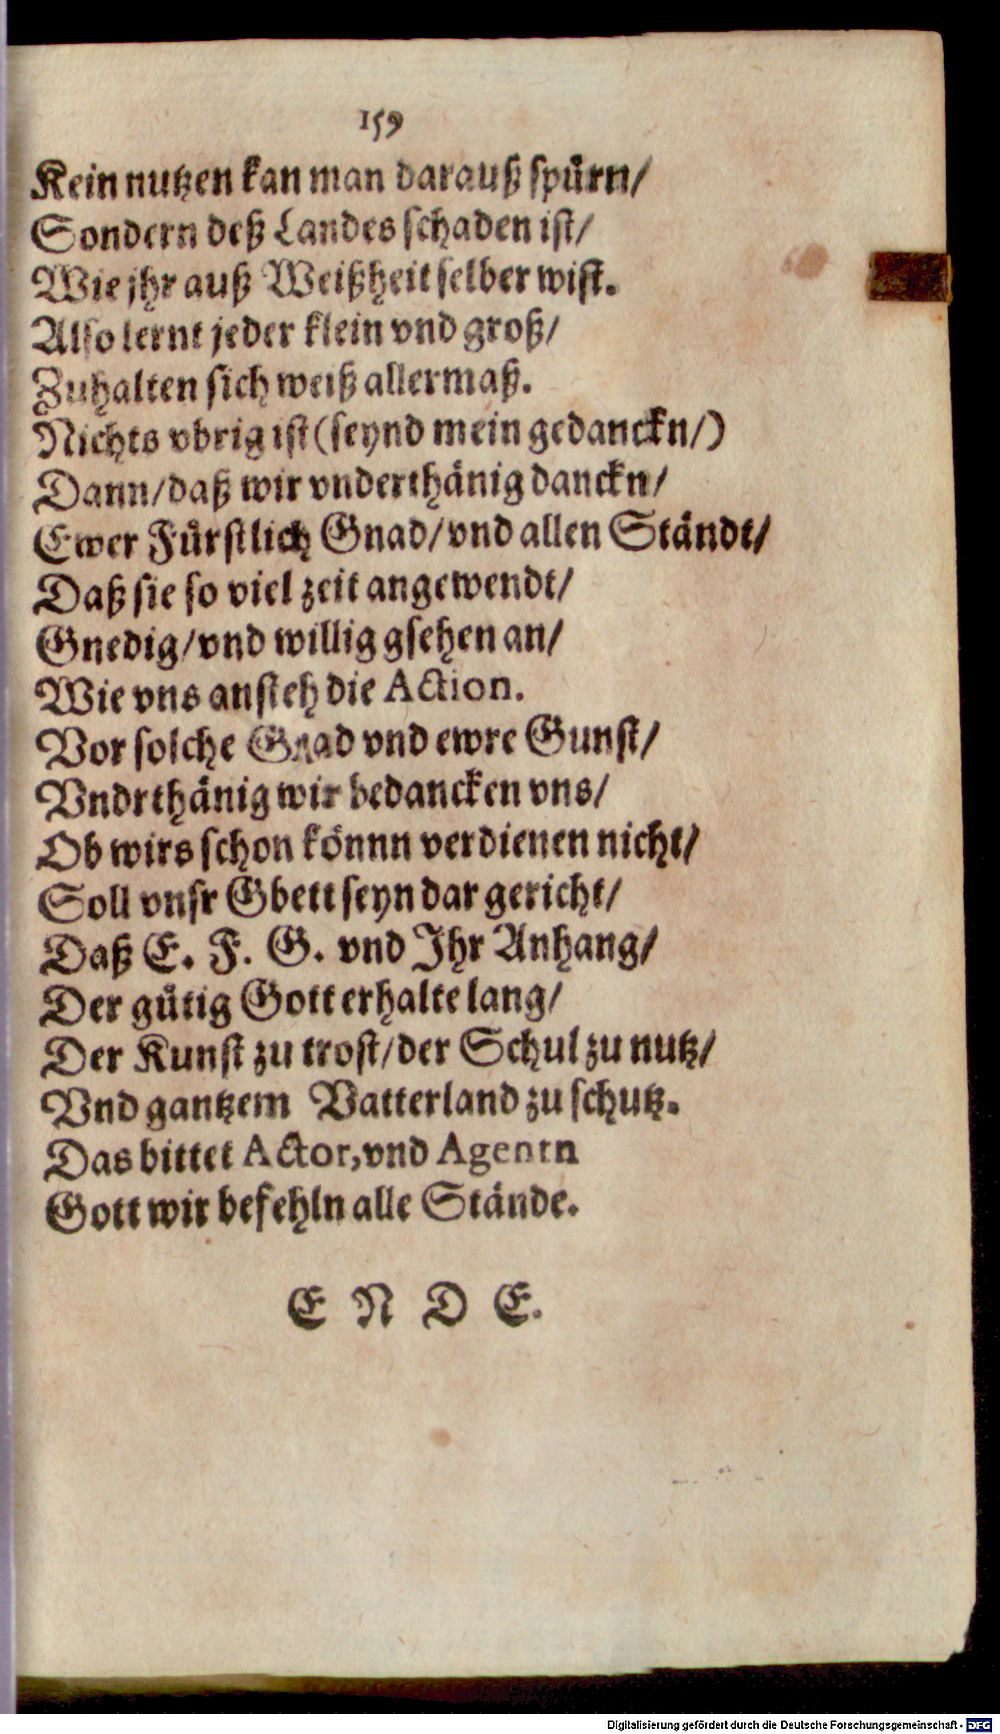 159
Kein nutzen kan man darauß spuͤrn/
Sondern deß Landes schaden ist/
Wie jhr auß Weißheit selber wist.
Also lernt jeder klein vnd groß/
Zuhalten sich weiß allermaß.
Nichts vbrig ist (seynd mein gedanckn/)
Dann/ daß wir vnderthänig danckn/
Ewer Fürstlich Gnad/ vnd allen Ständt/
Daß sie so viel zeit angewendt/
Gnedig/ vnd willig gsehen an/
Wie vns ansteh die Action.
Vor solche Gnad vnd ewre Gunst/
Vndrthänig wir bedancken vns/
Ob wirs schon könnn verdienen nicht/
Soll vnsr Gbett seyn dar gericht/
Daß E. F. G. vnd Ihr Anhang/
Der guͤtig Gott erhalte lang/
Der Kunst zu trost/ der Schul zu nutz/
Vnd gantzem Vatterland zu schutz.
Das bittet Actor, vnd Agentn
Gott wir befehln alle Stände.
E N D E.
Digitalisierung gefördert durch die Deutsche Forschungsgemeinschaft - DFG